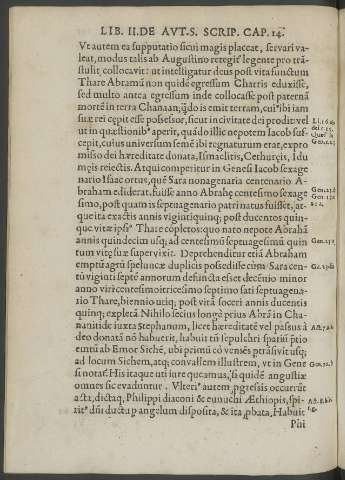 LIB. II. DE AVT. S. SCRIP. CAP. 14.
Vt autem ea supputatio sicui magis placeat, servari va-
leat, modus talis ab Augustino
stulit, collocavit: ut intelligatur deus post vita functum
Thare Abramũ non quidẽ egressum Charris eduxisse,
sed multo antea egressum inde collocasse post paternã
mortẽ in terra Chanaan,
suæ rei cepit esse possessor, sicut in civitate dei prodit: vel
ut in quæstionibꝰ aperit, quãdo illic nepotem Iacob sus-
cepit, cuius universum semẽ ibi regnaturum erat, expro
misso dei hæreditate donata, Ismaelitis, Cethuręis, Idu
męis reiectis. Atqui comperitur in Genesi Iacob sexage
nario Isaac ortus, quẽ Sara nonagenaria centenario A-
braham ediderat, fuisse anno Abrahę centesimo sexage
simo, postquam is septuagenario patri natus fuisset, at-
que ita exactis annis vigintiquinq; post ducentos quin-
que vitæ ipsiꝰ Thare cõpletos: quo nato nepote Abrahã
annis quindecim usq; ad centesimũ septuagesimũ quin
tum vitę suæ supervixit. Deprehenditur etiã Abraham
emptũ agrũ speluncæ duplicis possedisse cùm Sara cen-
tũ viginti septẽ annorum defuncta esset decẽnio minor
anno viri centesimotricesimo septimo sati septuagena-
rio Thare, biennio utiq; post vitã soceri annis ducentis
quinq; expletã. Nihilo secius longè prius Abrã in Cha-
nanitide iuxta Stephanum, licet hæreditatẽ vel passus à
deo donatã nõ habuerit, habuit tñ sepulchri
emtũ ab Emor Sichẽ, ubi primũ cò veniẽs
ad locum Sichem, atq; convallem illustrem, ut in Gene
si notat. His itaque uti iure queamus, si quidẽ angustiæ
omnes sic evaduntur. Vlteriꝰ autem
acta, dictaq; Philippi diaconi & eunuchi Æthiopis, spi-
ritꝰ dũi ductu p angelum disposita, & ita
Phi